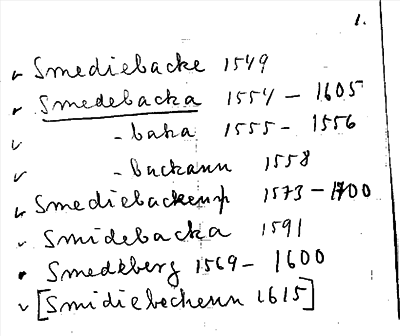 1.
Smediebacke 1549
Smedebacka 1554 – 1605
-baka 1555 – 1556
-backann 1558
Smediebackenn 1573 – 1700
Smidebacka 1591
Smedeberg 1569 – 1600
[Smidiebeckenn 1615]